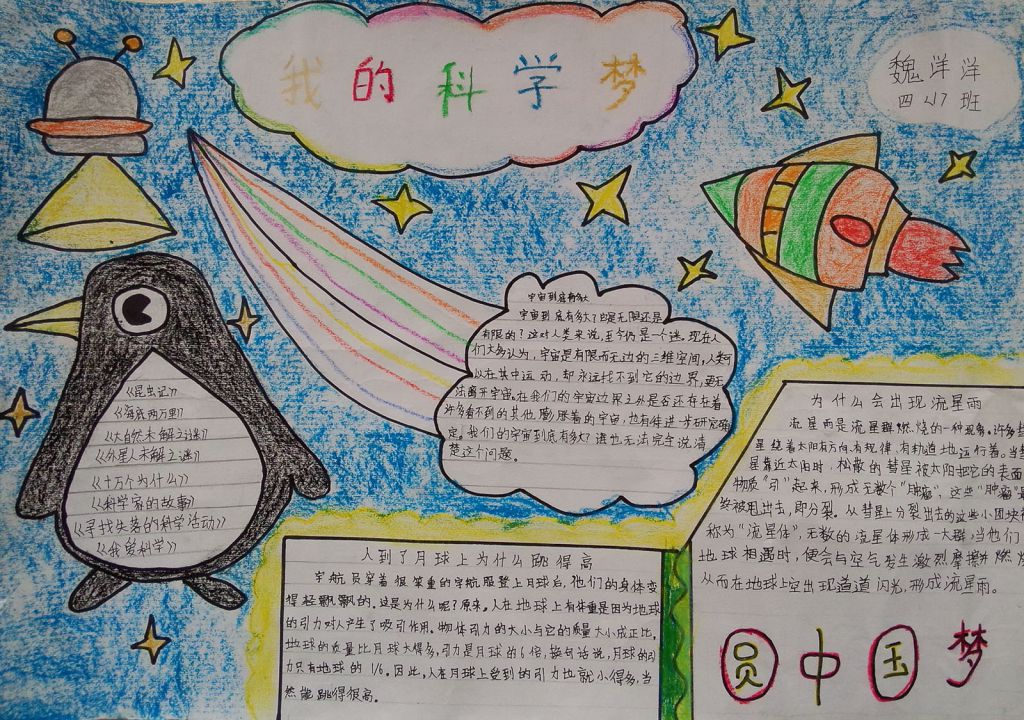 我的科学梦
魏洋洋
四〈1〉班
《昆虫记》
《海底两万里》
《大自然未解之谜》
《外星人未解之谜》
《十万个为什么》
《科学家的故事》
《寻找失落的科学活动》
《我爱科学》
宇宙到底有多大
宇宙到底有多大?它是无限还是
有限的?这对人类来说,至今仍是一个迷。现在人
们大多认为,宇宙是有限而无边的三维空间,人类可
以在其中运动,却永远找不到它的边界,更无
法离开宇宙。在我们的宇宙边界之外是否还存在着
许多看不到的其他膨胀着的宇宙,也有待进一步研究确
定。我们的宇宙到底有多大?谁也无法完全说清
楚这个问题。
人到了月球上为什么跳得高
宇航员穿着很笨重的宇航服登上月球后,他们的身体变
得轻飘飘的。这是为什么呢?原来。人在地球上有体重是因为地球
的引力对人产生了吸引作用。物体引力的大小与它的质量大小成正比,
地球的质量比月球大得多,引力是月球的6倍,换句话说,月球的引
力只有地球的1/6。因此,人在月球上受到的引力也就小得多,当
然能跳得很高。
为什么会出现流星雨
流星雨是流星群燃烧的一种现象。许多彗
星绕着太阳有方向、有规律、有轨道地运行着。当彗
星靠近太阳时,松散的彗星被太阳把它的表面
物质“引”起来,形成无数个“肿瘤”,这些“肿瘤”最
终被甩出去,即分裂。从彗星上分裂出去的这些小团块被
称为“流星体”,无数的流星体形成一大群,当他们
地球相遇时,便会与空气发生激烈摩擦并燃烧
从而在地球上空出现道道闪光,形成流星雨。
圆中国梦